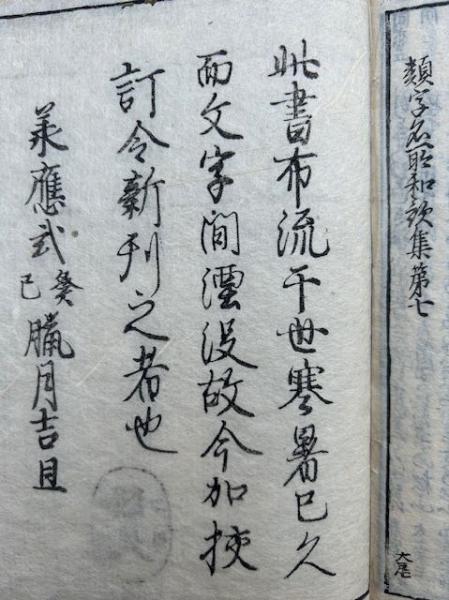 類字名所和歌集第七
大尾
此書布流于世寒暑已久
而文字間湮没故今加挍
訂令新刊之者也
承應弐癸巳臘月吉旦